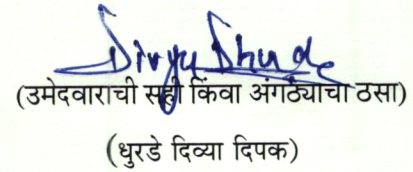 Divya Dhurde
(उमेदवाराची सही किंवा अंगठ्याचा ठसा)
(धुरडे दिव्या दिपक)